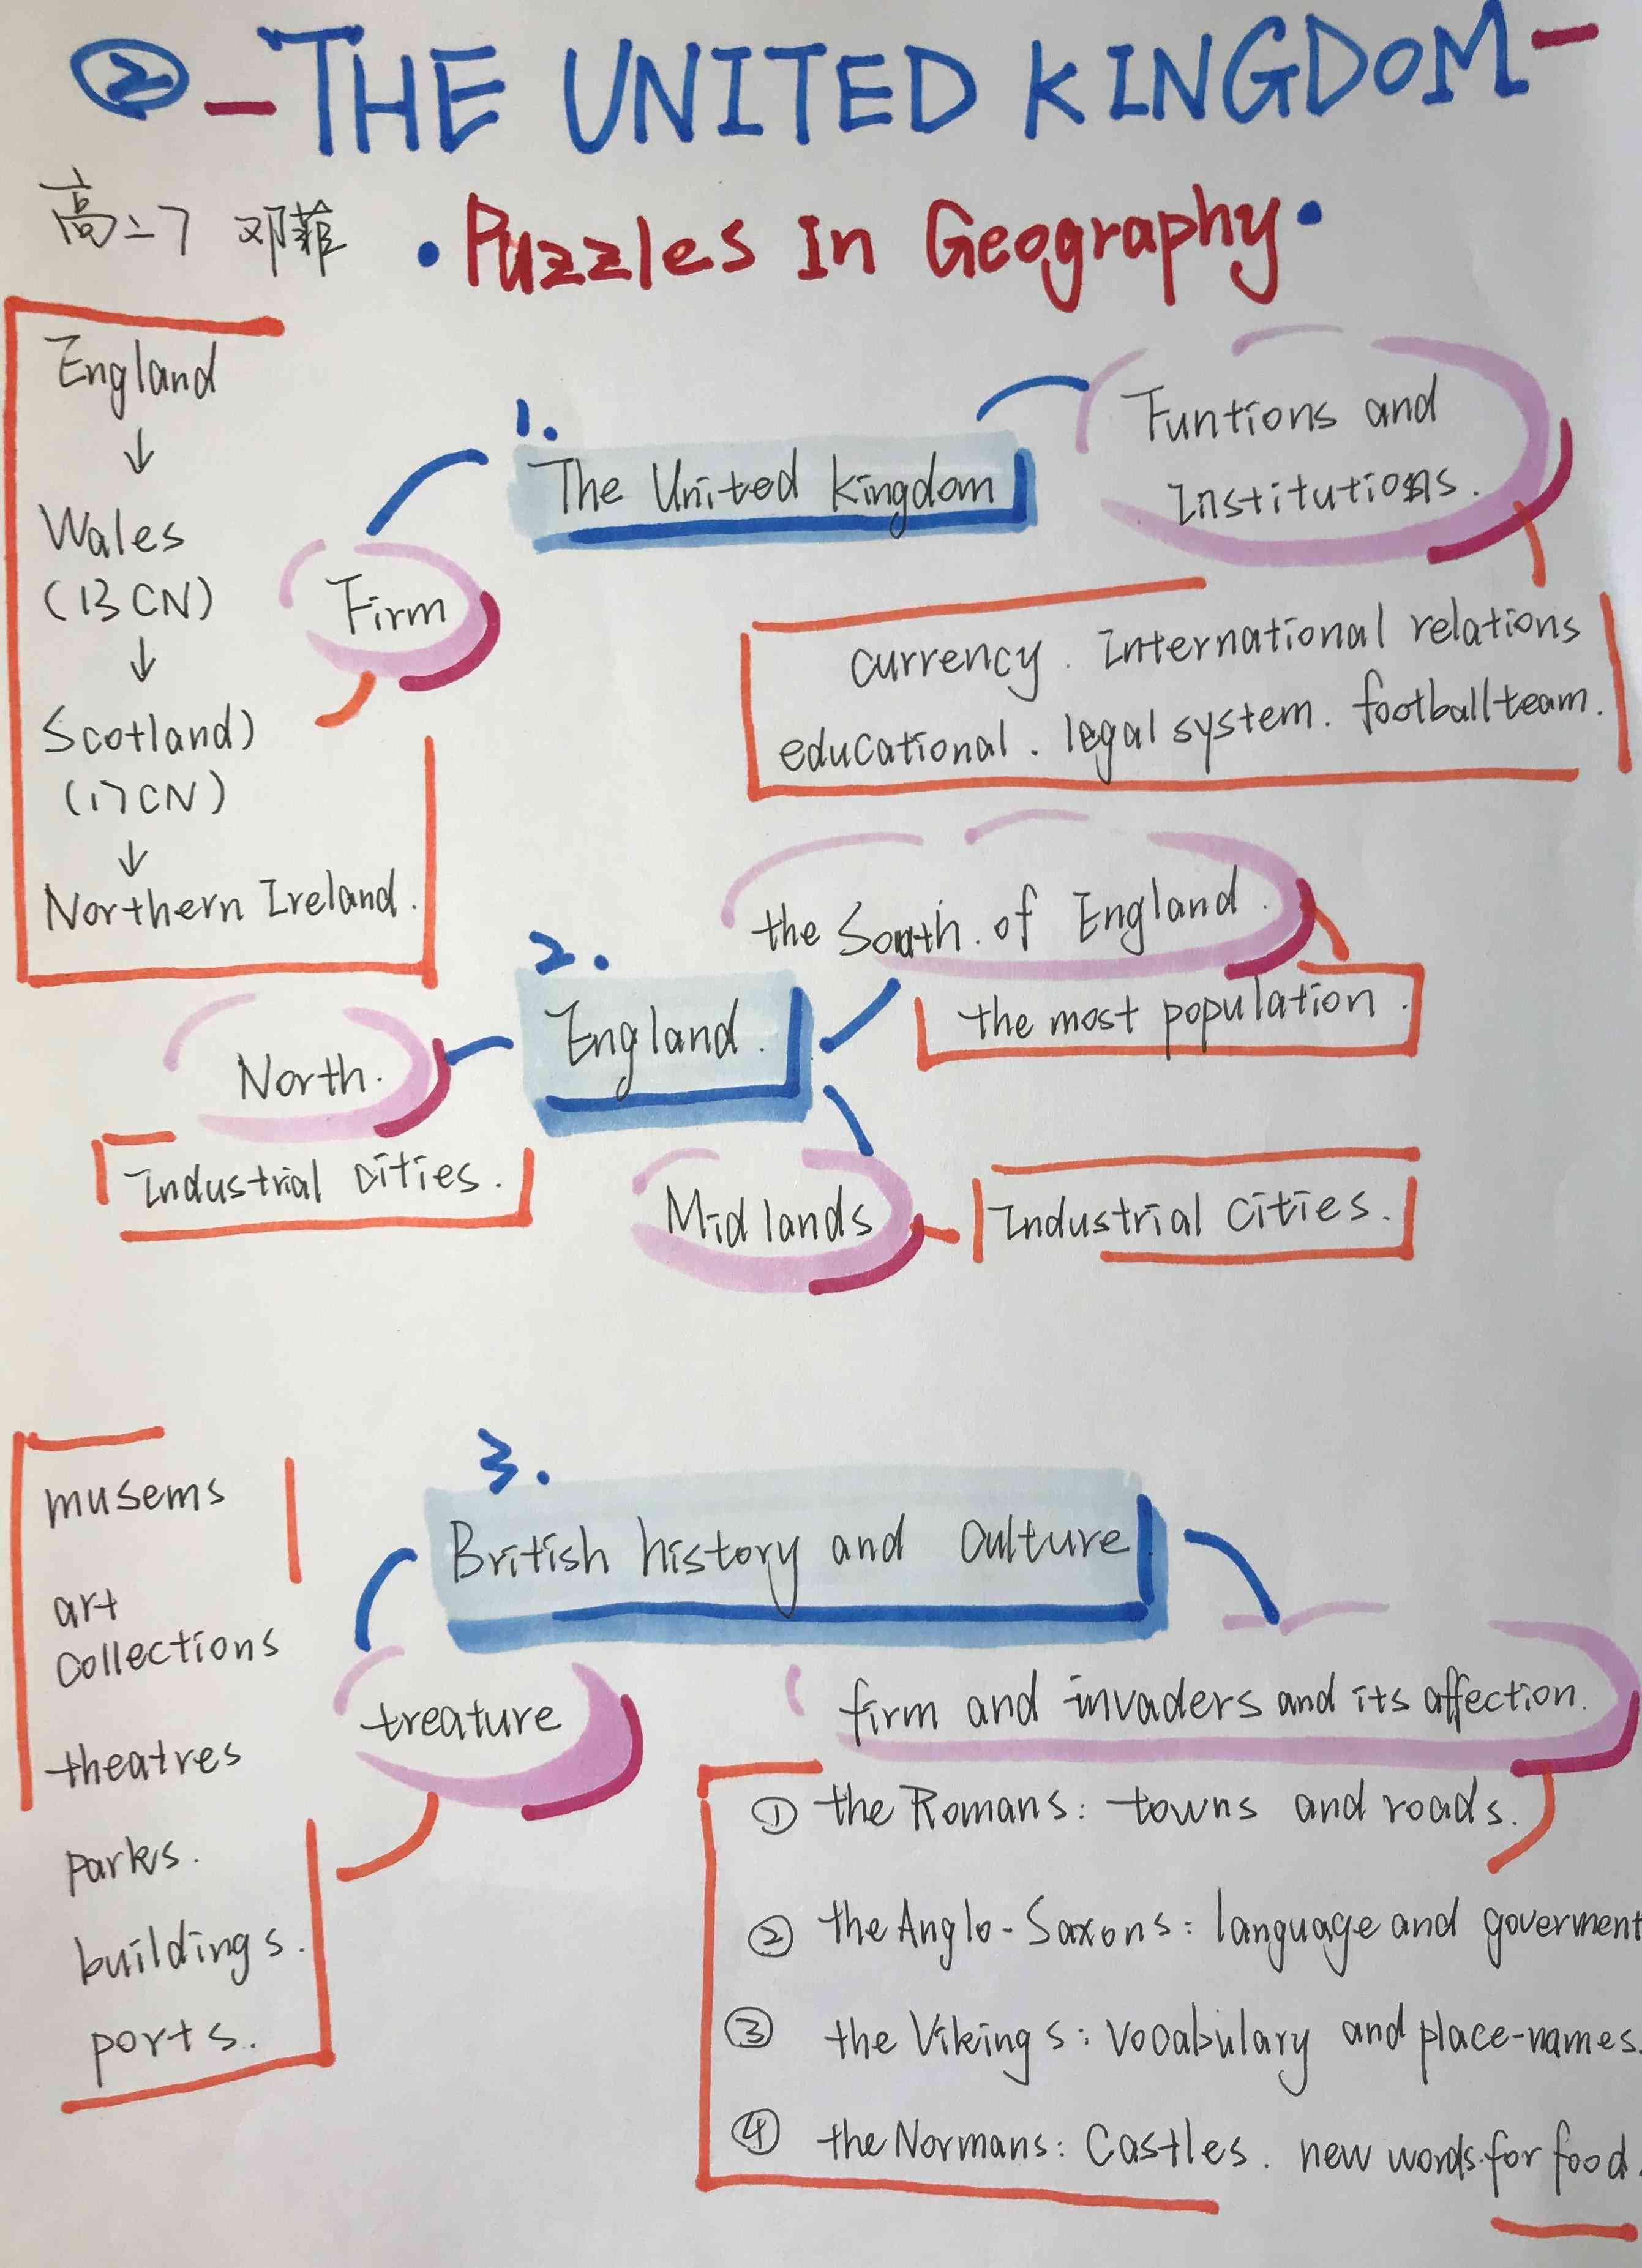 ② -THE UNITED KINGDOM-
高二7 邓菲
• Puzzles In Geography •
England
↓
Wales
(13 CN)
↓
Scotland)
(17 CN)
↓
Northern Ireland.
Firm
1.
The United kingdom
Funtions and
Institutions.
currency. International relations
educational. legal system. football team.
2.
England.
the South. of England.
the most population.
North.
Industrial cities.
Midlands
Industrial Cities.
3.
British history and Culture
treature
musems
art
Collections
theatres
parks.
buildings.
ports.
firm and invaders and its affection.
① the Romans: towns and roads.
② the Anglo-Saxons: language and goverment
③ the Vikings: Vocabulary and place-names.
④ the Normans: Castles. new words for food.